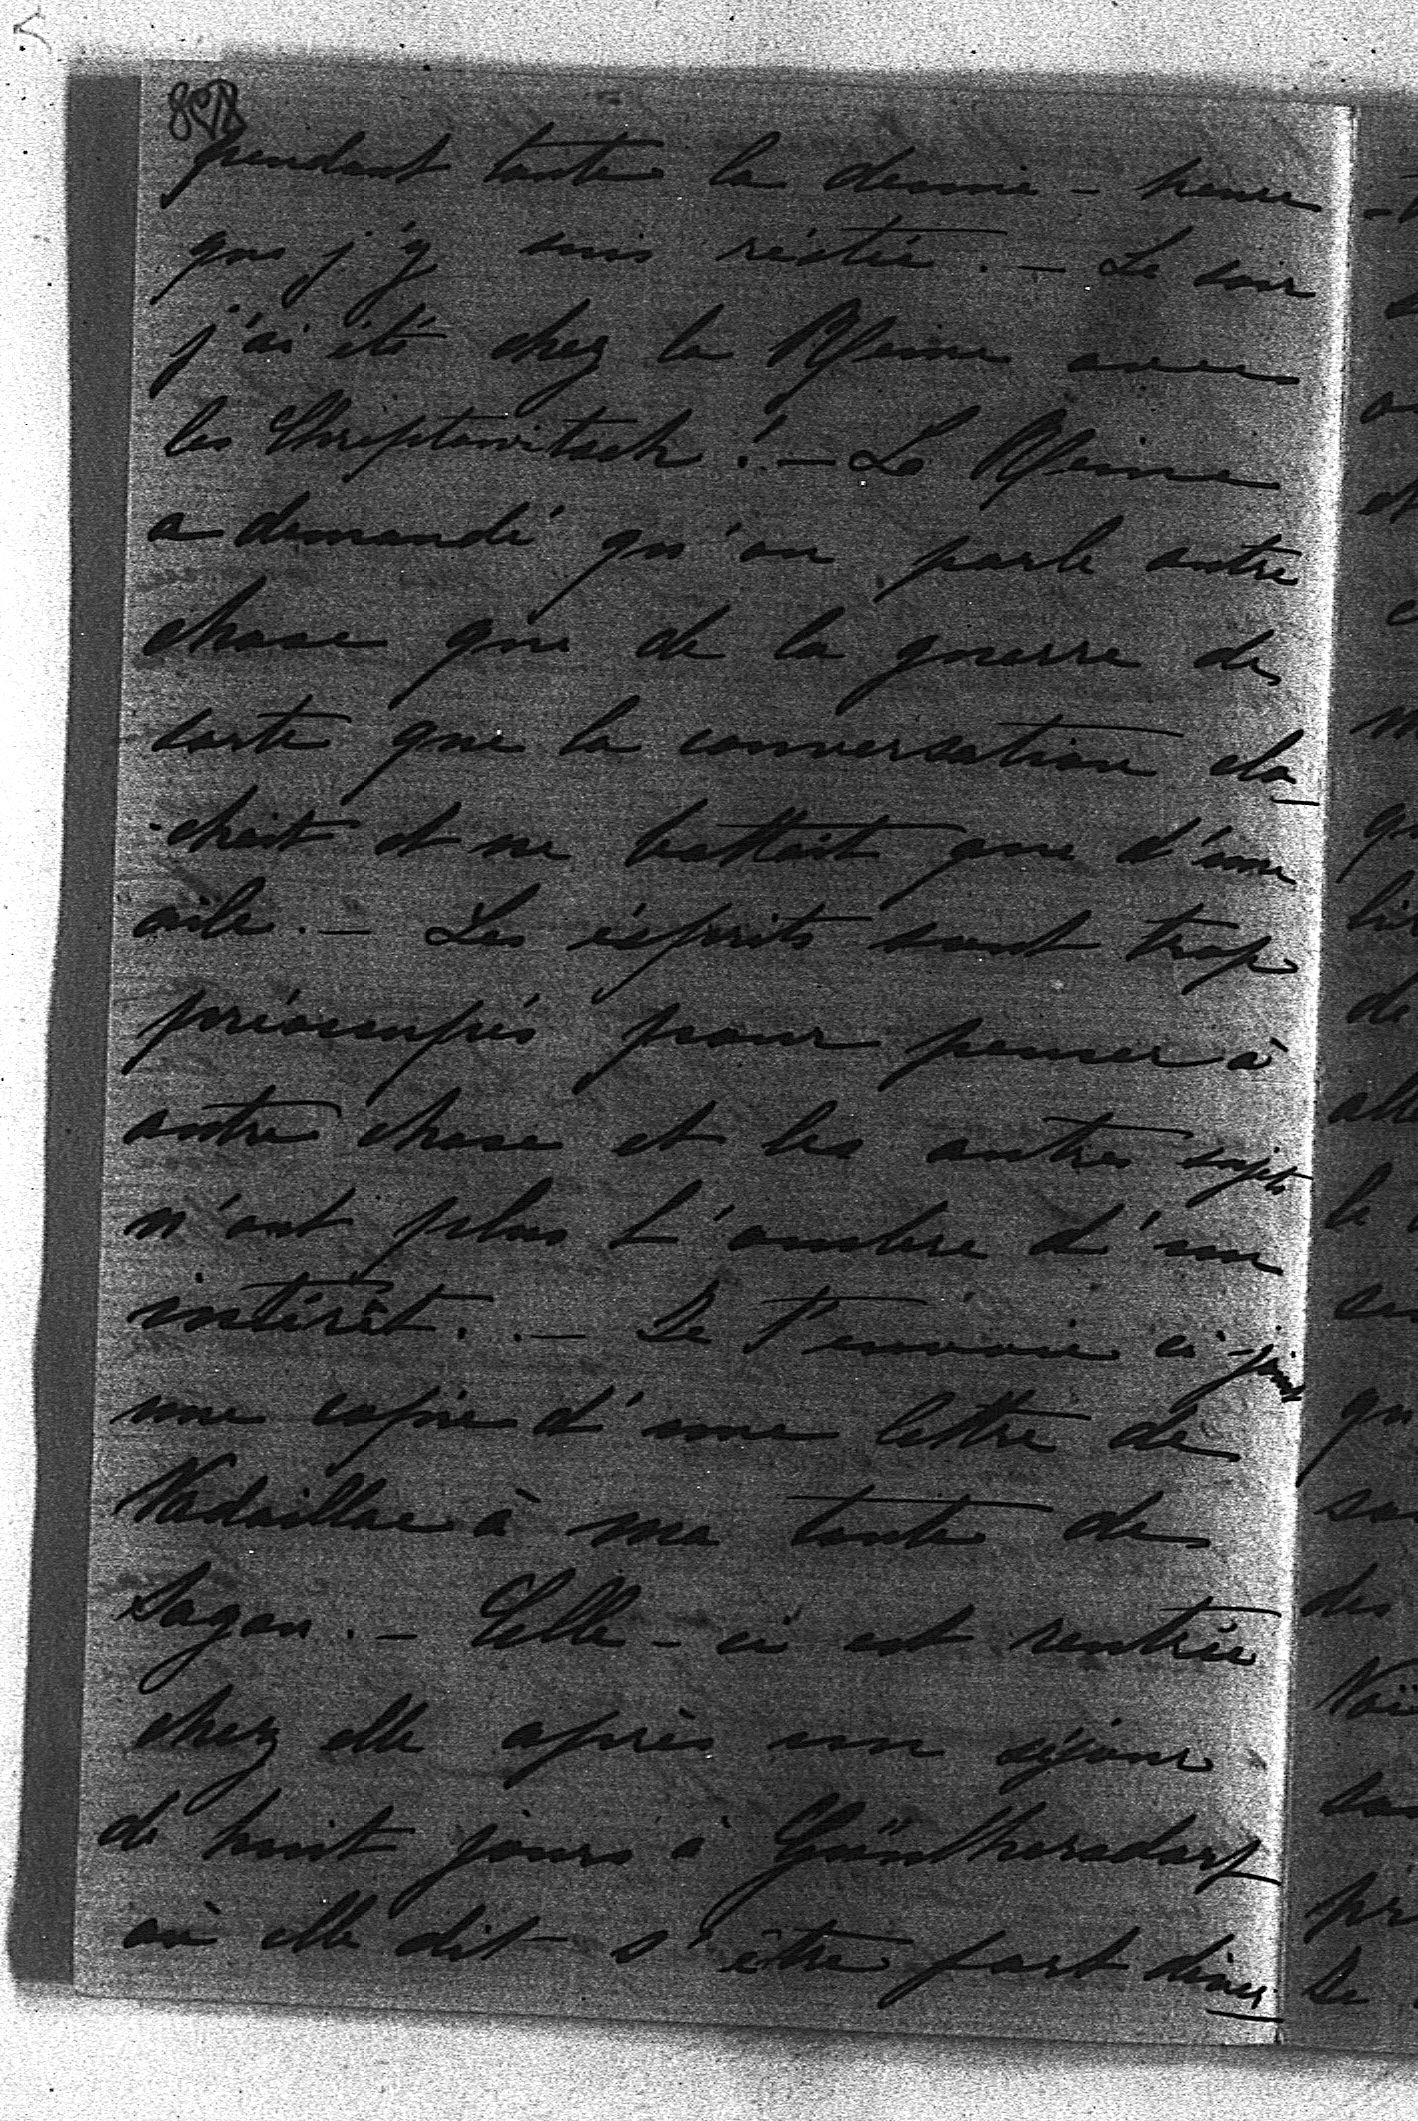 pendant toute la demie - heure
que j'y suis réstée. - Le soir
j'ai été chez la Reine avec
les Chreptowitsch. - La Reine
a demandé qu'on parle autre
chose que de la guerre de
sorte que la conversation clo-
-chait et ne battait que d'une
aile. - Les ésprits sont trop
préoccupés pour penser à
autre chose et les autres sujets
n'ont plus l'ombre d'un
intérêt. - Je T'envoie ci joint
une copie d'une lettre de
Nadaillac à ma tante de
Sagan. - Celle - ci est rentrée
chez elle après un séjour
de huit jours à Günthersdorf
où elle dit s'être fort diver-